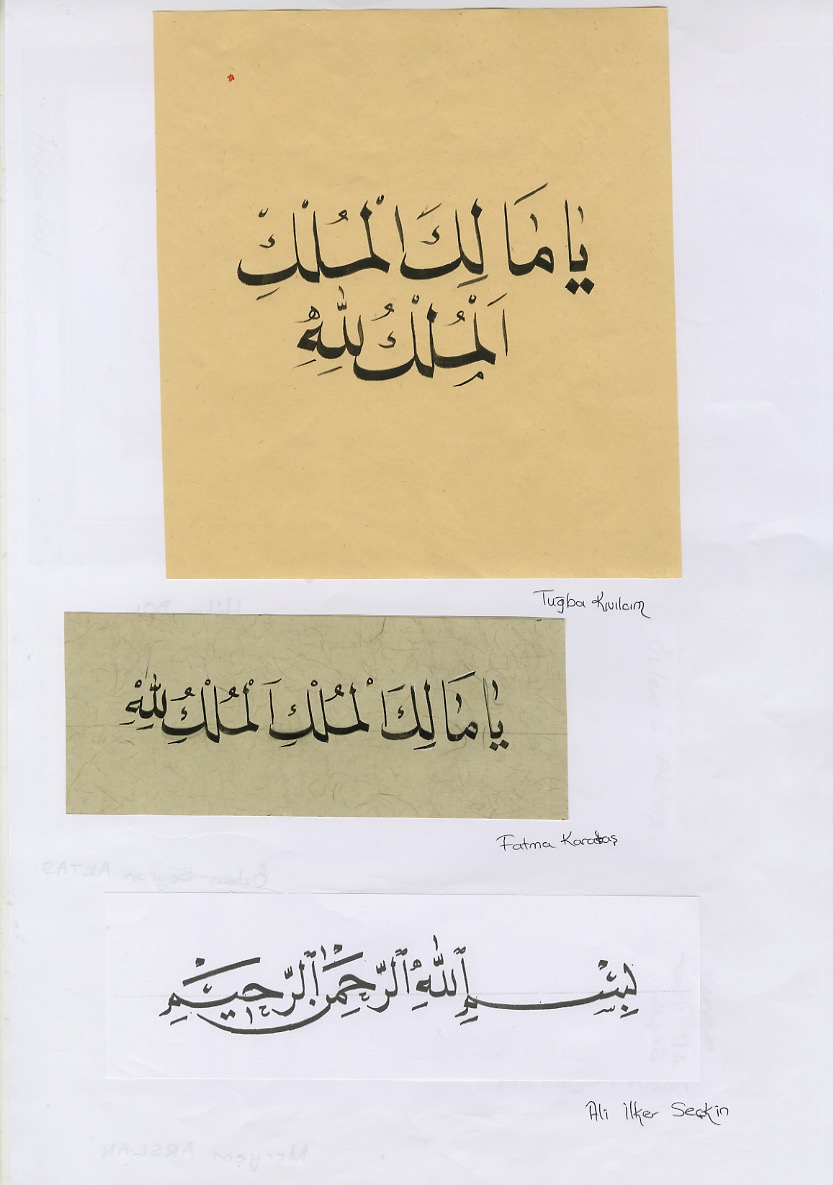 يَا مَا لِكَ الْمُلْكِ
اَلْمُلْكُ لِلّٰهِ
Tuğba Kıvılcım
يَا مَا لِكَ الْمُلْكِ اَلْمُلْكُ لِلّٰهِ
Fatma Karataş
بِسْمِ اللّٰهِ الرَّحْمٰنِ الرَّحِيمِ
Ali İlker Seçkin
Meryem ARSLAN